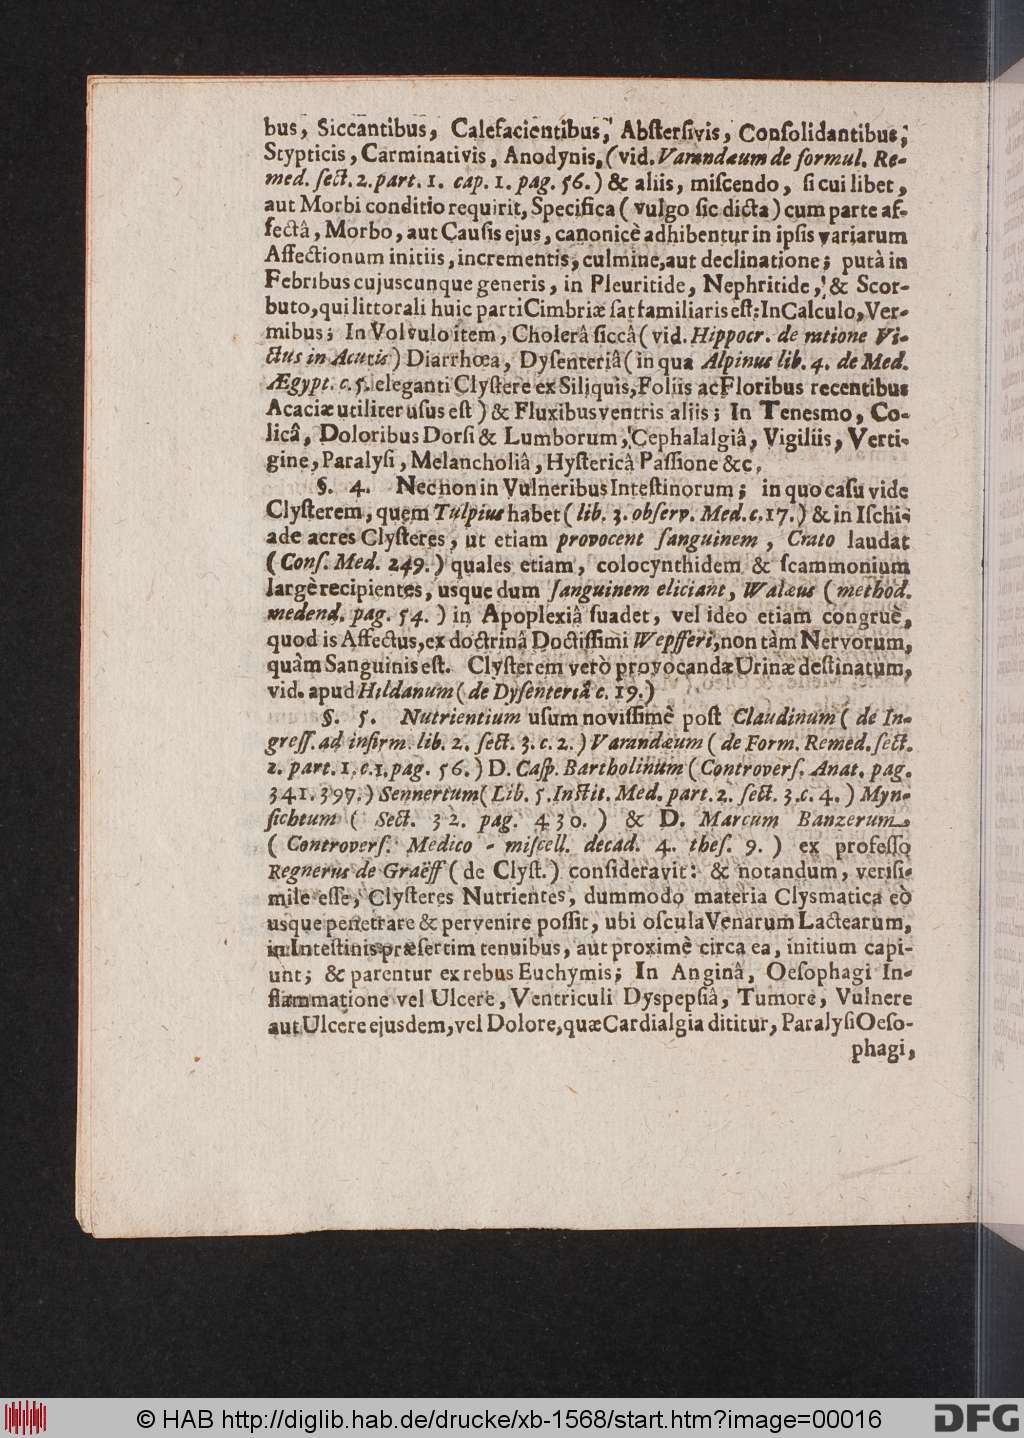 bus, Siccantibus, Calefacientibus, Abſterſivis, Conſolidantibus,
Stypticis, Carminativis, Anodynis, (vid. Varandæum de formul. Re-
med. ſect. 2. part. 1. cap. 1. pag. 56.) & aliis, miſcendo, ſi cui libet,
aut Morbi conditio requirit, Specifica (vulgo ſic dicta) cum parte af-
fectâ, Morbo, aut Cauſis ejus, canonicè adhibentur in ipſis variarum
Affectionum initiis, incrementis, culmine, aut declinatione; putà in
Febribus cujuscunque generis, in Pleuritide, Nephritide, & Scor-
buto, qui littorali huic parti Cimbriæ ſat familiaris eſt; In Calculo, Ver-
mibus; In Volvulo item, Cholerâ ſiccâ (vid. Hippocr. de ratione Vi-
ctus in Acutis) Diarrhœa, Dyſenteriâ (in qua Alpinus lib. 4. de Med.
Ægypt. c. 5. eleganti Clyſtere ex Siliquis, Foliis ac Floribus recentibus
Acaciæ utiliter uſus eſt) & Fluxibus ventris aliis; In Tenesmo, Co-
licâ, Doloribus Dorſi & Lumborum, Cephalalgiâ, Vigiliis, Verti-
gine, Paralyſi, Melancholiâ, Hyſtericâ Paſſione &c.
§. 4. Nec non in Vulneribus Inteſtinorum; in quo caſu vide
Clyſterem, quem Tulpius habet (lib. 3. obſerv. Med. c. 17.) & in Iſchi-
ade acres Clyſteres, ut etiam provocent ſanguinem, Crato laudat
(Conſ. Med. 249.) quales etiam, colocynthidem & ſcammonium
largè recipientes, usque dum ſanguinem eliciant, Walæus (method.
medend. pag. 54.) in Apoplexiâ ſuadet, vel ideo etiam congruè,
quod is Affectus, ex doctrinâ Doctiſſimi Wepfferi, non tàm Nervorum,
quàm Sanguinis eſt. Clyſterem verò provocandæ Urinæ deſtinatum,
vid. apud Hildanum (de Dyſenteriâ c. 19.)
§. 5. Nutrientium uſum noviſſimè poſt Claudinum (de In-
greſſ. ad infirm. lib. 2. ſect. 3. c. 2.) Varandæum (de Form. Remed. ſect.
2. part. 1. c. 1. pag. 56.) D. Caſp. Bartholinum (Controverſ. Anat. pag.
341. 397.) Sennertum (Lib. 5. Inſtit. Med. part. 2. ſect. 3. c. 4.) Myn-
ſichtum (Sect. 32. pag. 430.) & D. Marcum Banzerum
(Controverſ. Medico-miſcell. decad. 4. theſ. 9.) ex profeſſo
Regnerus de Graëff (de Clyſt.) conſideravit: & notandum, veriſi-
mile eſſe, Clyſteres Nutrientes, dummodo materia Clysmatica eò
usque penetrare & pervenire poſſit, ubi oſcula Venarum Lactearum,
in Inteſtinis præſertim tenuibus, aut proximè circa ea, initium capi-
unt; & parentur ex rebus Euchymis; In Anginâ, Oeſophagi In-
flammatione vel Ulcere, Ventriculi Dyspepſiâ, Tumore, Vulnere
aut Ulcere ejusdem, vel Dolore, quæ Cardialgia dititur, Paralyſi Oeſo-
phagi,
© HAB http://diglib.hab.de/drucke/xb-1568/start.htm?image=00016
DFG